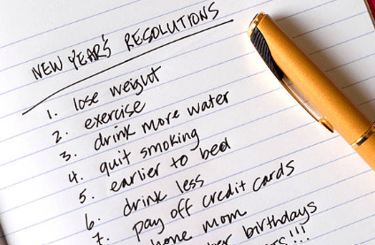 NEW YEAR'S RESOLUTIONS
1. lose weight
2. exercise
3. drink more water
4. quit smoking
5. earlier to bed
6. drink less
7. pay off credit cards
hone mom
birthdays
!!!